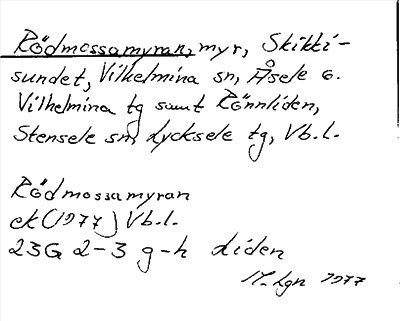 Rödmossamyran, myr, Skikki-
sundet, Vilhelmina sn, Åsele o.
Vilhelmina tg samt Rönnliden,
Stensele sn, Lycksele tg, Vb.l.
Rödmossamyran
ek (1977) Vb.l.
23G 2-3 g-h Liden
1977